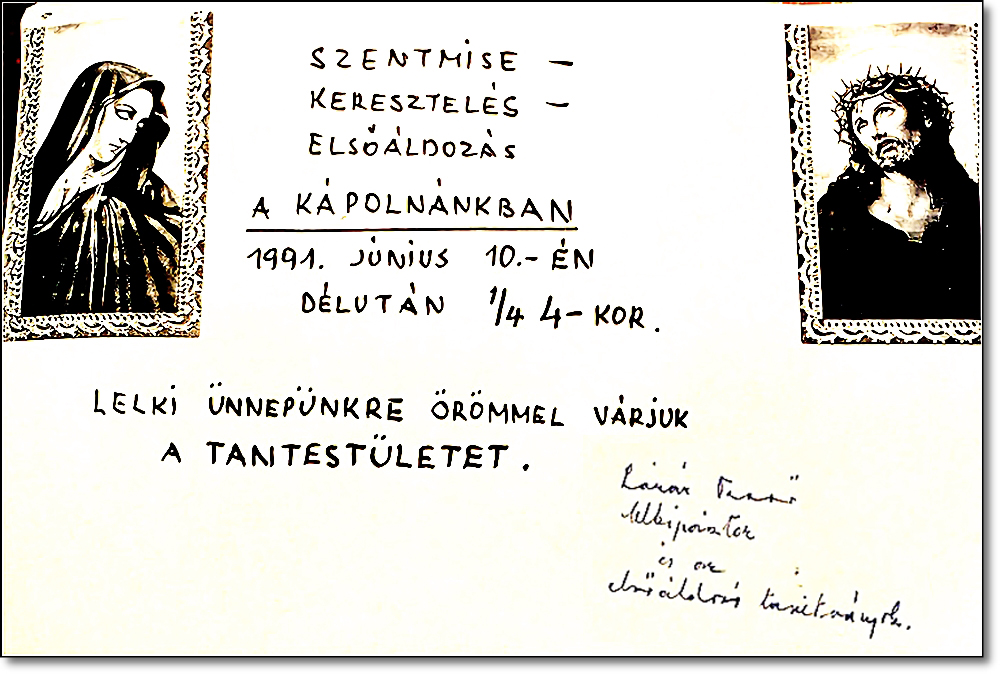 SZENTMISE –
KERESZTELÉS –
ELSŐÁLDOZÁS
A KÁPOLNÁNKBAN
1991. JÚNIUS 10.-ÉN
DÉLUTÁN 1/4 4-KOR.
LELKI ÜNNEPÜNKRE ÖRÖMMEL VÁRJUK
A TANTESTÜLETET.
Lázár
lelkipásztor
és az
elsőáldozó tanítványok.